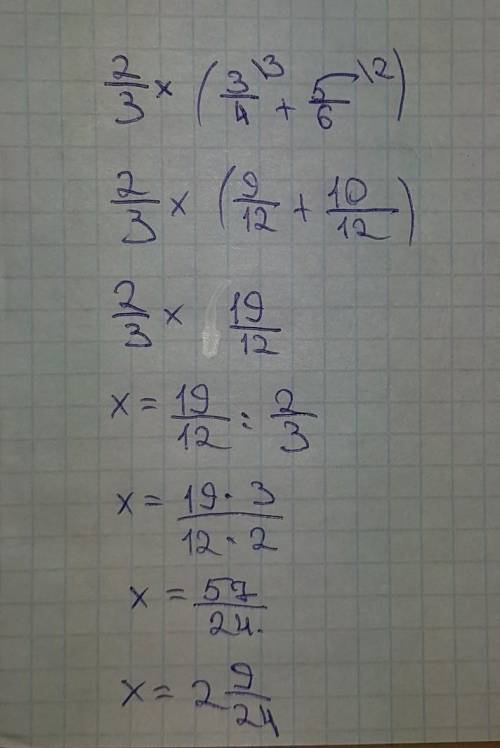 2/3 x (3/4 \3 + 5/6 \2)
2/3 x (9/12 + 10/12)
2/3 x 19/12
x = 19/12 : 2/3
x = 19 · 3 / 12 · 2
x = 57/24.
x = 2 9/24